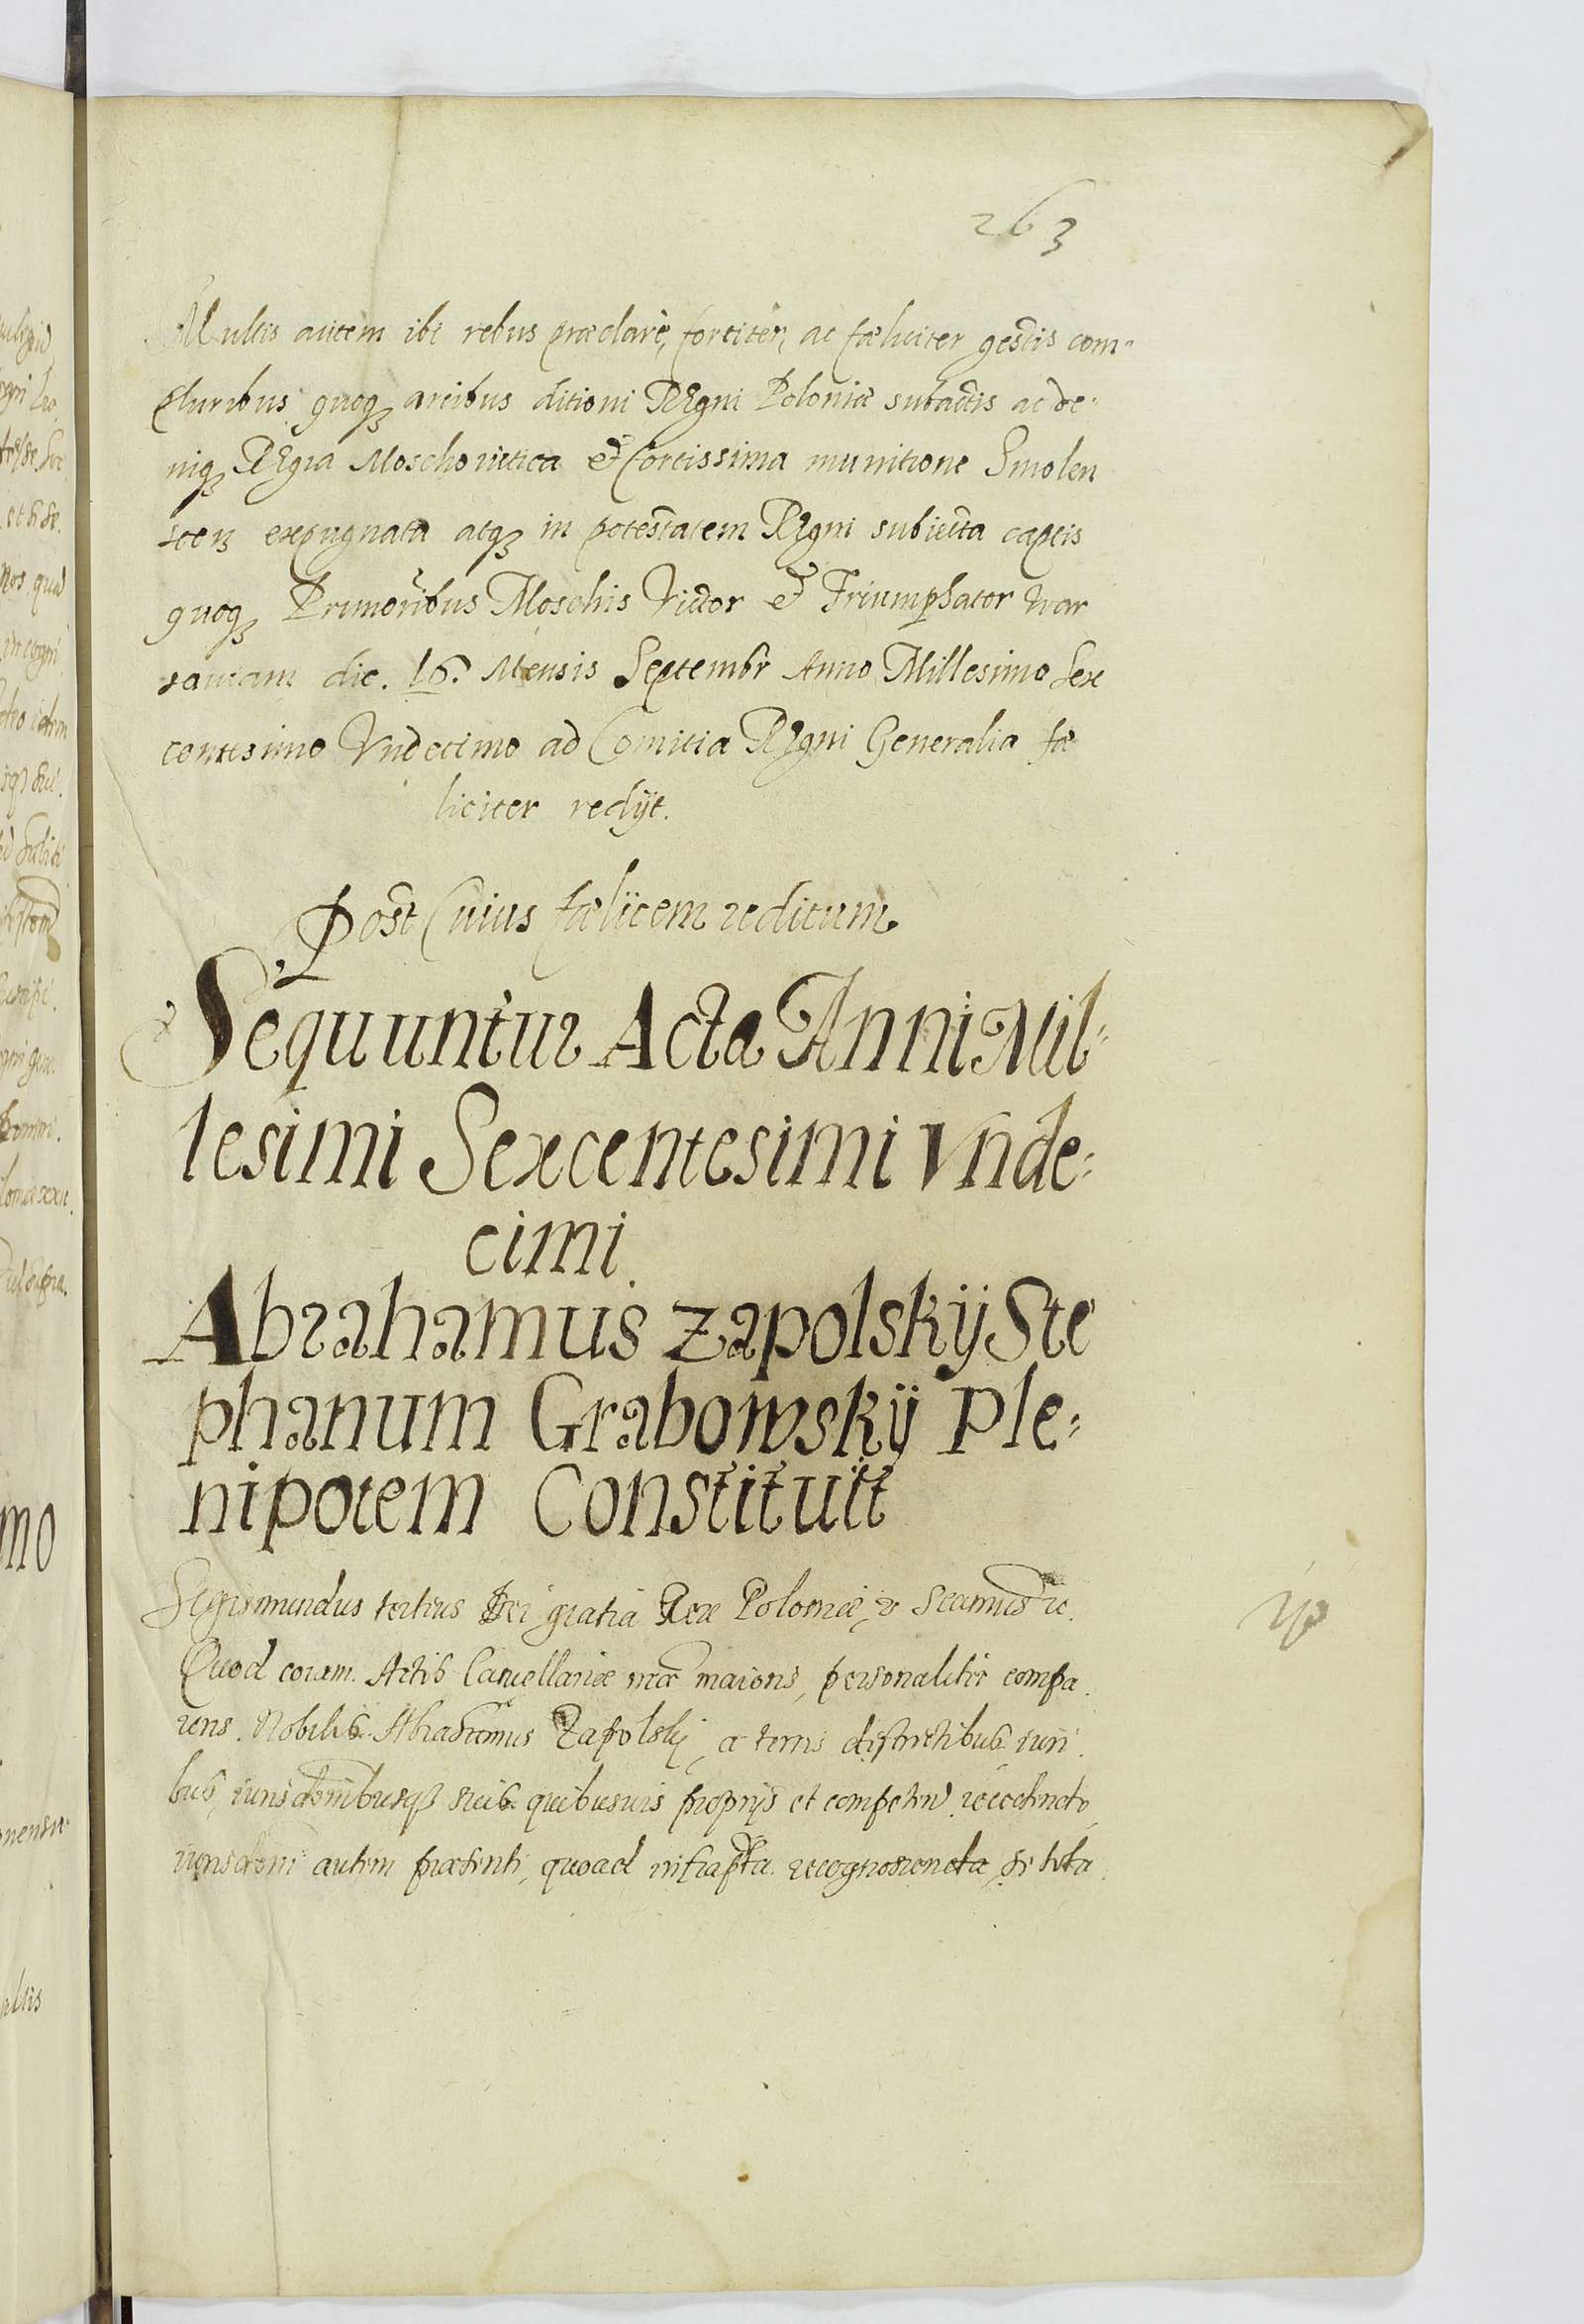 263
Multis autem ibi rebus præclarè, fortiter, ac fæliciter gestis com-
pluribus quoq₃ arcibus ditioni Regni Poloniæ subactis ac de-
niq₃ Regia Moschovitica et fortissima munitione Smolen
scen expugnata atq₃ in potestatem Regni subiecta captis
quoq₃ Primoribus Moschis Victor et Triumphator War
saviam die. 16. Mensis Septembr Anno Millesimo Sex
centesimo Vndecimo ad Comitia Regni Generalia fæ
liciter redijt.
Post Cuius fælicem reditum
Sequuntur Acta Anni Mil-
lesimi Sexcentesimi Vnde-
cimi
Abrahamus Zapolskij Ste
phanum Grabowskij Ple-
nipotem Constituit
Sigismundus tertius Dei gratia Rex Poloniæ, &
Quod coram Actis Cancellariæ nræ maioris, personaliter compa
rens Nobilis Abrahamus Zapolskj, a terris districtibus iuri
bus, iurisdonibusq₃ suis quibusvis proprijs et competen recedendo
iurisdoni autem præsenti, quoad infrapta recognoscenda se tota